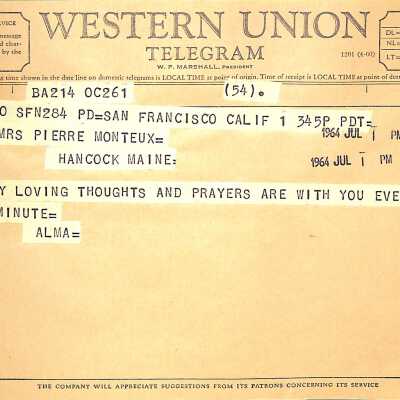 SERVICE
WESTERN UNION
TELEGRAM
W. P. MARSHALL, PRESIDENT
1201 (4-60)
message
and char-
by the
DL=
NL=
LT=
time shown in the date line on domestic telegrams is LOCAL TIME at point of origin. Time of receipt is LOCAL TIME at point of
BA214 OC261 (54).
O SFN284 PD=SAN FRANCISCO CALIF 1 345P PDT=
MRS PIERRE MONTEUX= 1964 JUL 1 PM
HANCOCK MAINE: 1964 JUL 1 PM
Y LOVING THOUGHTS AND PRAYERS ARE WITH YOU EVE
MINUTE=
ALMA=
THE COMPANY WILL APPRECIATE SUGGESTIONS FROM ITS PATRONS CONCERNING ITS SERVICE